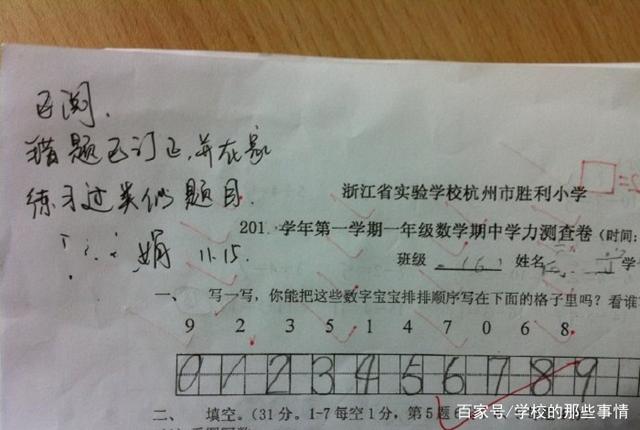 已阅.
错题已订正,并在家
练习过类似题目.
娟 11.15.
浙江省实验学校杭州市胜利小学
201 学年第一学期一年级数学期中学力测查卷(时间:
班级 (6) 姓名 学
一、 写一写,你能把这些数字宝宝排排顺序写在下面的格子里吗?看谁
9 2 3 5 1 4 7 0 6 8
0 1 2 3 4 5 6 7 8 9
二、 填空。(31分。1-7每空1分,第5题6
百家号/学校的那些事情